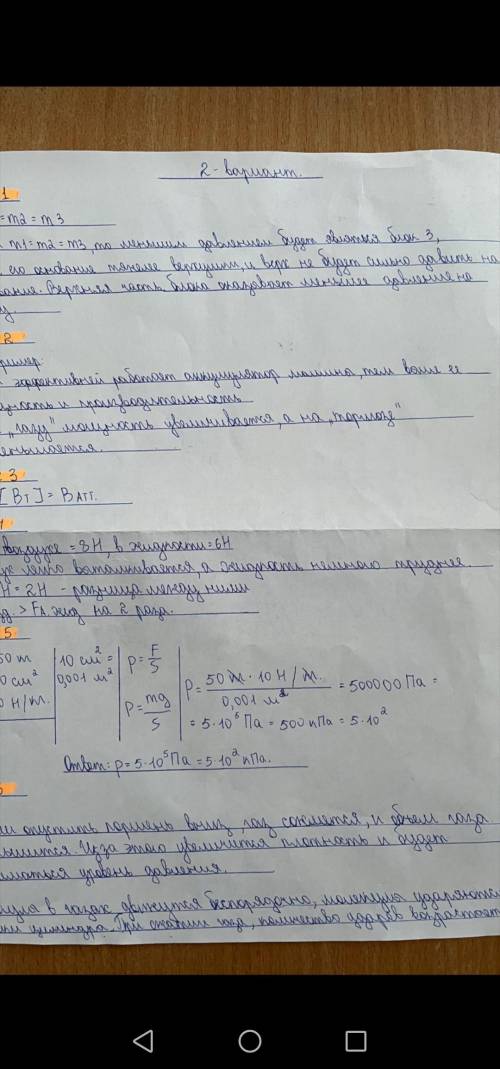 2 - вариант.
1
= m2 = m3
m1 = m2 = m3, то меньшим давлением будет являться блок 3,
его основание тяжелее верхушки, и верх не будет сильно давить на
вание. Верхняя часть блока оказывает меньшее давление на
у.
2
ример:
эффективней работает аккумулятор машины, тем выше её
щность и производительность
"газу" мощность увеличивается, а на "тормозе"
еньшается.
3
[Вт] = Ватт.
воздухе = 8Н, в жидкости = 6Н
легко выталкивается, а жидкость немного труднее.
Н = 2Н - разница между ними
> FA жид на 2 раза.
5
50 т 10 см² = P = F/S
0 см² 0,001 м² P = mg/S
0 Н/т. P = 50 т · 10 Н/т. / 0,001 м² = 500000 Па =
= 5·10⁵ Па = 500 кПа = 5·10²
Ответ: p = 5·10⁵ Па = 5·10² кПа.
ли опустить поршень вниз, газ сожмется, и объем газа
ьшится. Из за этого увеличится плотность и будет
иматься уровень давления.
в газах движутся беспорядочно, молекулы ударяются
цилиндра. При сжатии газа, количество ударов возрастает